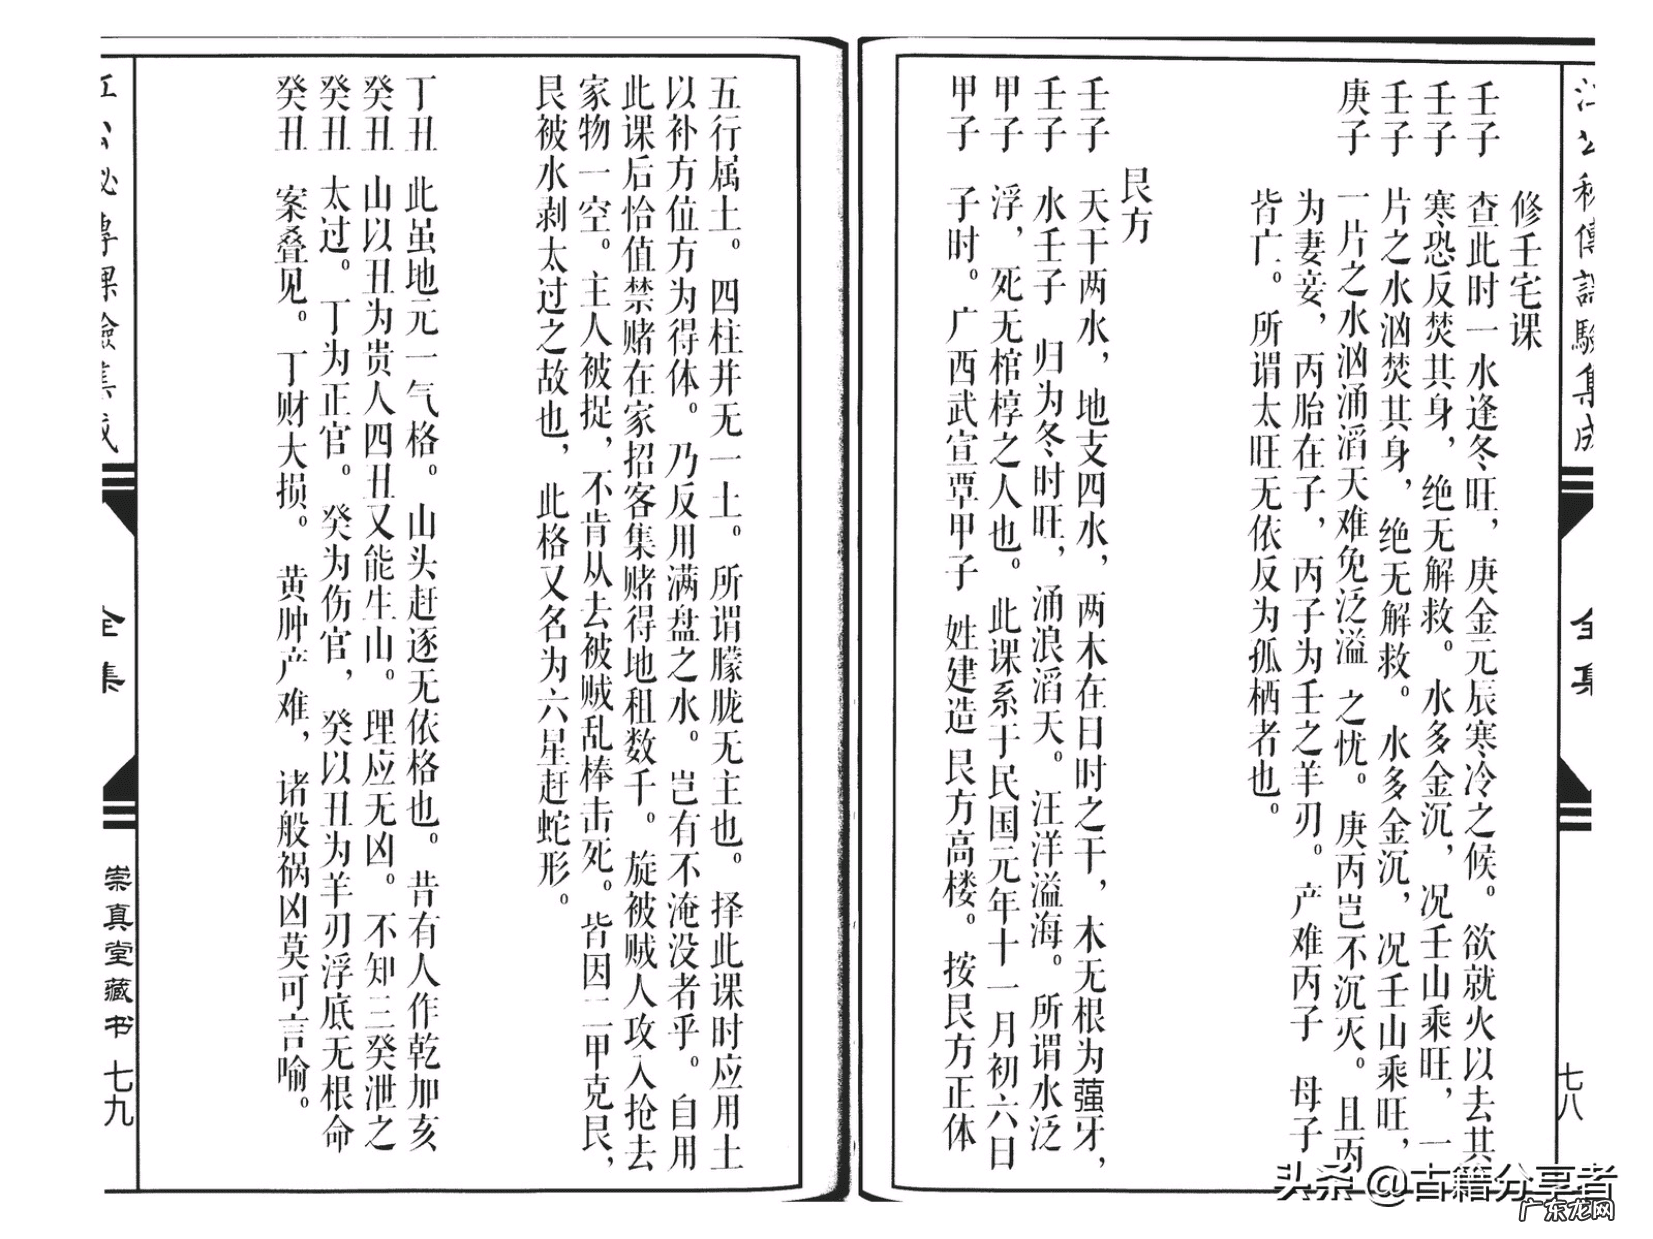 修壬宅课
壬子 查此时一水逢冬旺，庚金元辰寒冷之候。欲就火以去其
壬子 寒恐反焚其身，绝无解救。水多金沉，况壬山乘旺，一
壬子 片之水汹焚其身，绝无解救。水多金沉，况壬山乘旺，
庚子 一片之水汹涌滔天难免泛溢之忧。庚丙岂不沉灭。且丙
为妻妾，丙胎在子，丙子为壬之羊刃。产难丙子 母子
皆亡。所谓太旺无依反为孤栖者也。
艮方
壬子 天干两水，地支四水，两木在日时之干，木无根为蔃牙，
壬子 水壬子 归为冬时旺，涌浪滔天。汪洋溢海。所谓水泛
甲子 浮，死无棺椁之人也。此课系于民国元年十一月初六日
甲子 子时。广西武宣覃甲子 姓建造艮方高楼。按艮方正体
七八
五行属土。四柱并无一土。所谓朦胧无主也。择此课时应用土
以补方位方为得体。乃反用满盘之水。岂有不淹没者乎。自用
此课后恰值禁赌在家招客集赌得地租数千。旋被贼人攻入抢去
家物一空。主人被捉，不肯从去被贼乱棒击死。皆因二甲克艮，
艮被水剥太过之故也，此格又名为六星赶蛇形。
丁丑 此虽地元一气格。山头赶逐无依格也。昔有人作乾加亥
癸丑 山以丑为贵人四丑又能生山。理应无凶。不知三癸泄之
癸丑 太过。丁为正官。癸为伤官，癸以丑为羊刃浮底无根命
癸丑 案叠见。丁财大损。黄肿产难，诸般祸凶莫可言喻。
江公秘傳課驗集成
全集
崇真堂藏书 七九
头条@古籍分享者
广东龙网